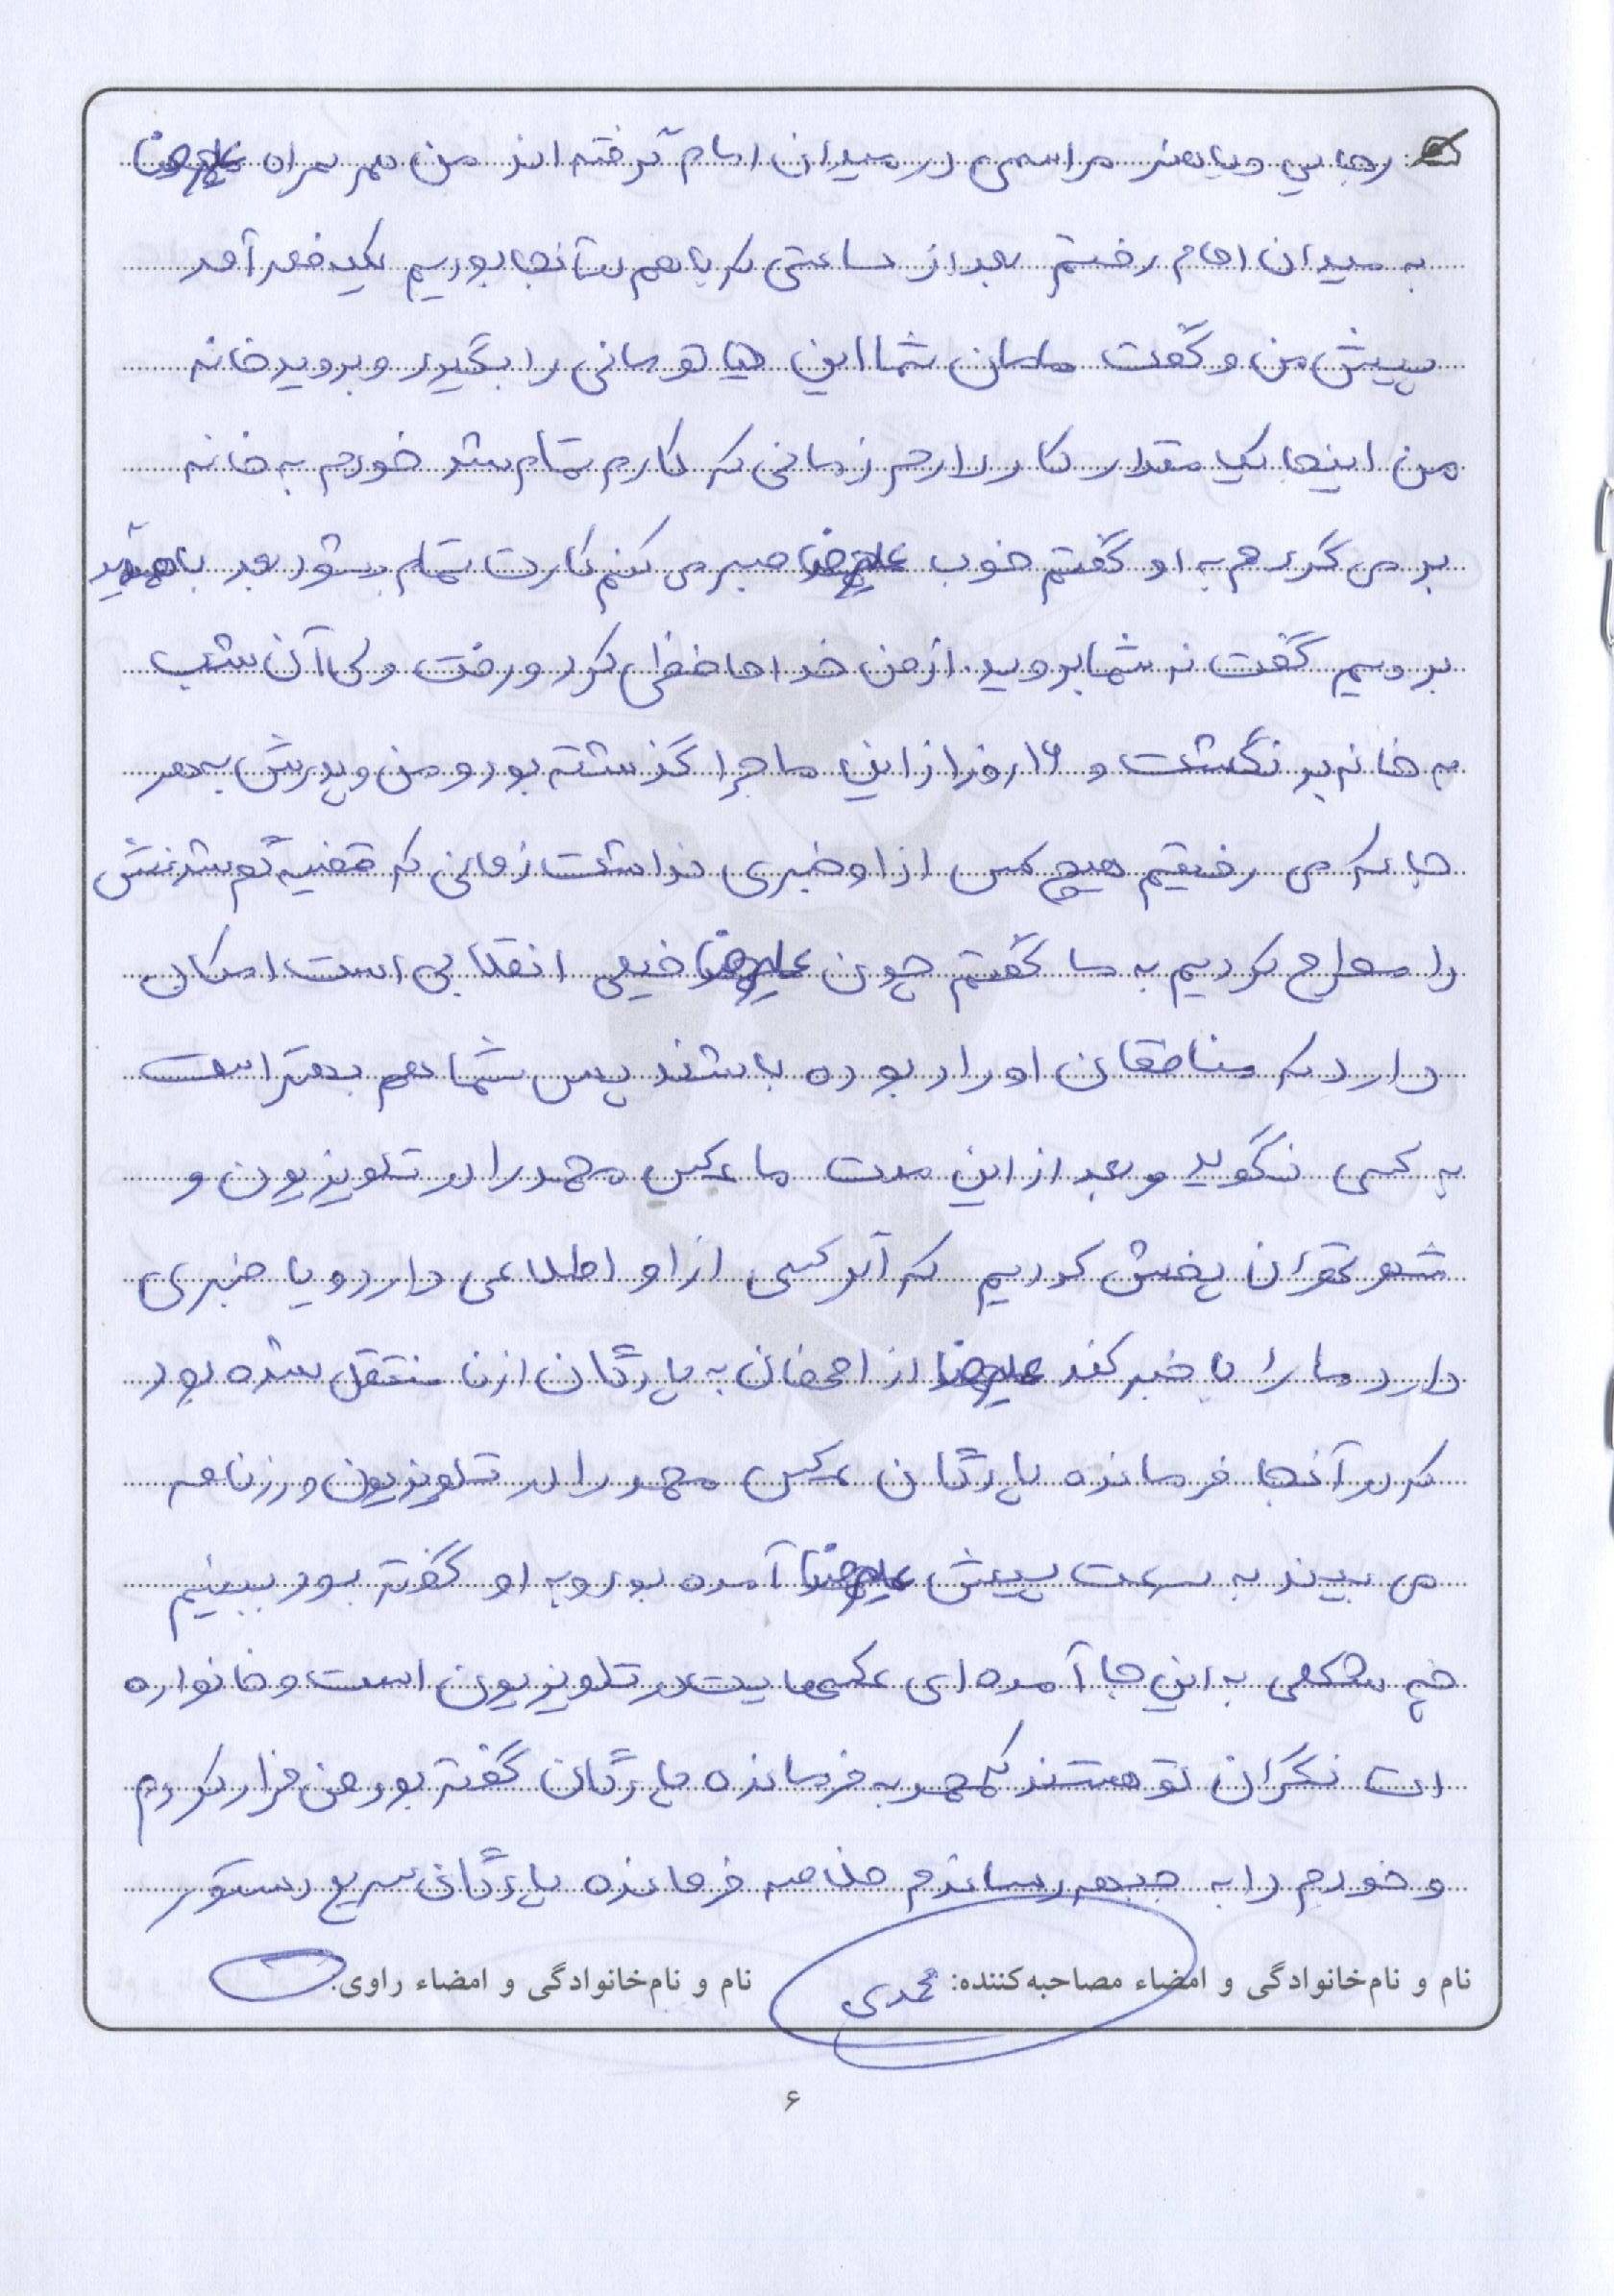 رجایی و باهنر مراسمی در میدان امام گرفته اند من هم همراه علیرضا
به میدان امام رفتم بعد از ساعتی که با هم در آنجا بودیم یکدفعه آمد
پیش من و گفت مامان شما این هیا تو مانی را بگیرد و بروید خانه
من اینجا یک مقدار کار دارم زمانی که کارم تمام شد خودم به خانه
بر می گردم به او گفتم خوب علیرضا صبر می کنم کارت تمام بشود بعد با هم
برویم گفت نه شما بروید. از من خداحافظی کرد و رفت ولی آن شب
به خانه بر نگشت و ۱۶ روز از این ماجرا گذشته بود و من و پدرش به هر
جا که می رفیقم هیچ کس از او خبری نداشت زمانی که قضیه گم شدنش
را مطرح کردیم به ما گفتم چون علیرضا خیلی انقلابی است امکان
دارد که منافقان او را ربوده باشند پس شما هم بهتر است
به کسی نگوید و بعد از این مدت ما عکس محمد را در تلویزیون و
شهر تهران پخش کردیم که اگر کسی از او اطلاعی دارد و یا خبری
دارد ما را با خبر کند علیرضا از اصفهان به پادگان ازنا منتقل شده بود
که در آنجا فرمانده پادگان عکس محمد را در تلویزیون و رزنامه
می بیند به سرعت پیش علیرضا آمده بود و به او گفته بود ببینیم
چه شکلی به این جا آمده ای عکسهایت در تلویزیون است و خانواره
ات نگران تو هستند که محمد به فرمانده پادگان گفته بود من فرار کردم
و خودم را به جبهه رساندم خلاصه فرمانده پادگان سریع دستور
نام و نام‌خانوادگی و امضاء مصاحبه‌کننده: محمدی نام و نام‌خانوادگی و امضاء راوی:
۶